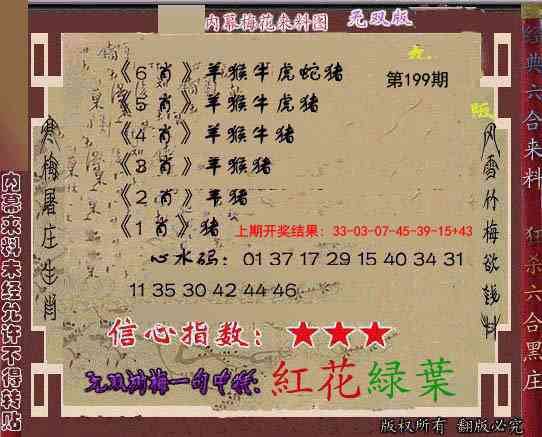 内幕梅花来料图 无双版
第199期
《6肖》羊猴牛虎蛇猪
《5肖》羊猴牛虎猪
《4肖》羊猴牛猪
《3肖》羊猴猪
《2肖》羊猪
《1肖》猪
上期开奖结果：33-03-07-45-39-15+43
心水码：01 37 17 29 15 40 34 31
11 35 30 42 44 46
信心指数：★★★
无双鸿梅一句中特：紅花緑葉
寒梅屠庄生肖
风雪竹梅欲钱料
内幕来料未经允许不得转贴
经典六合来料
狂杀六合黑庄
版权所有 翻版必究